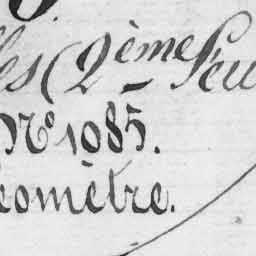 les (2ème Feu
N° 1085.
éomètre.